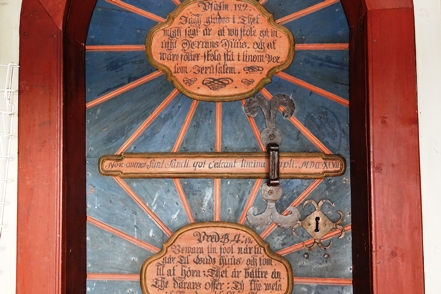 Psalm 122.
Jagh glades i Thet
migh sagt är at wij skole gå in
uthi Herrans Huus, och at
wåre fötter skola stå i tinom Por
tom Jerusalem.
omnes Sunt Sancti qui Calcant limina Templi. MDCC
Pred: B. 4.
Bewara tin foot när tu
går Til Gudz Huus, och kom
til at höra: Thet är bättre än
The dårars offer: Ty the weta